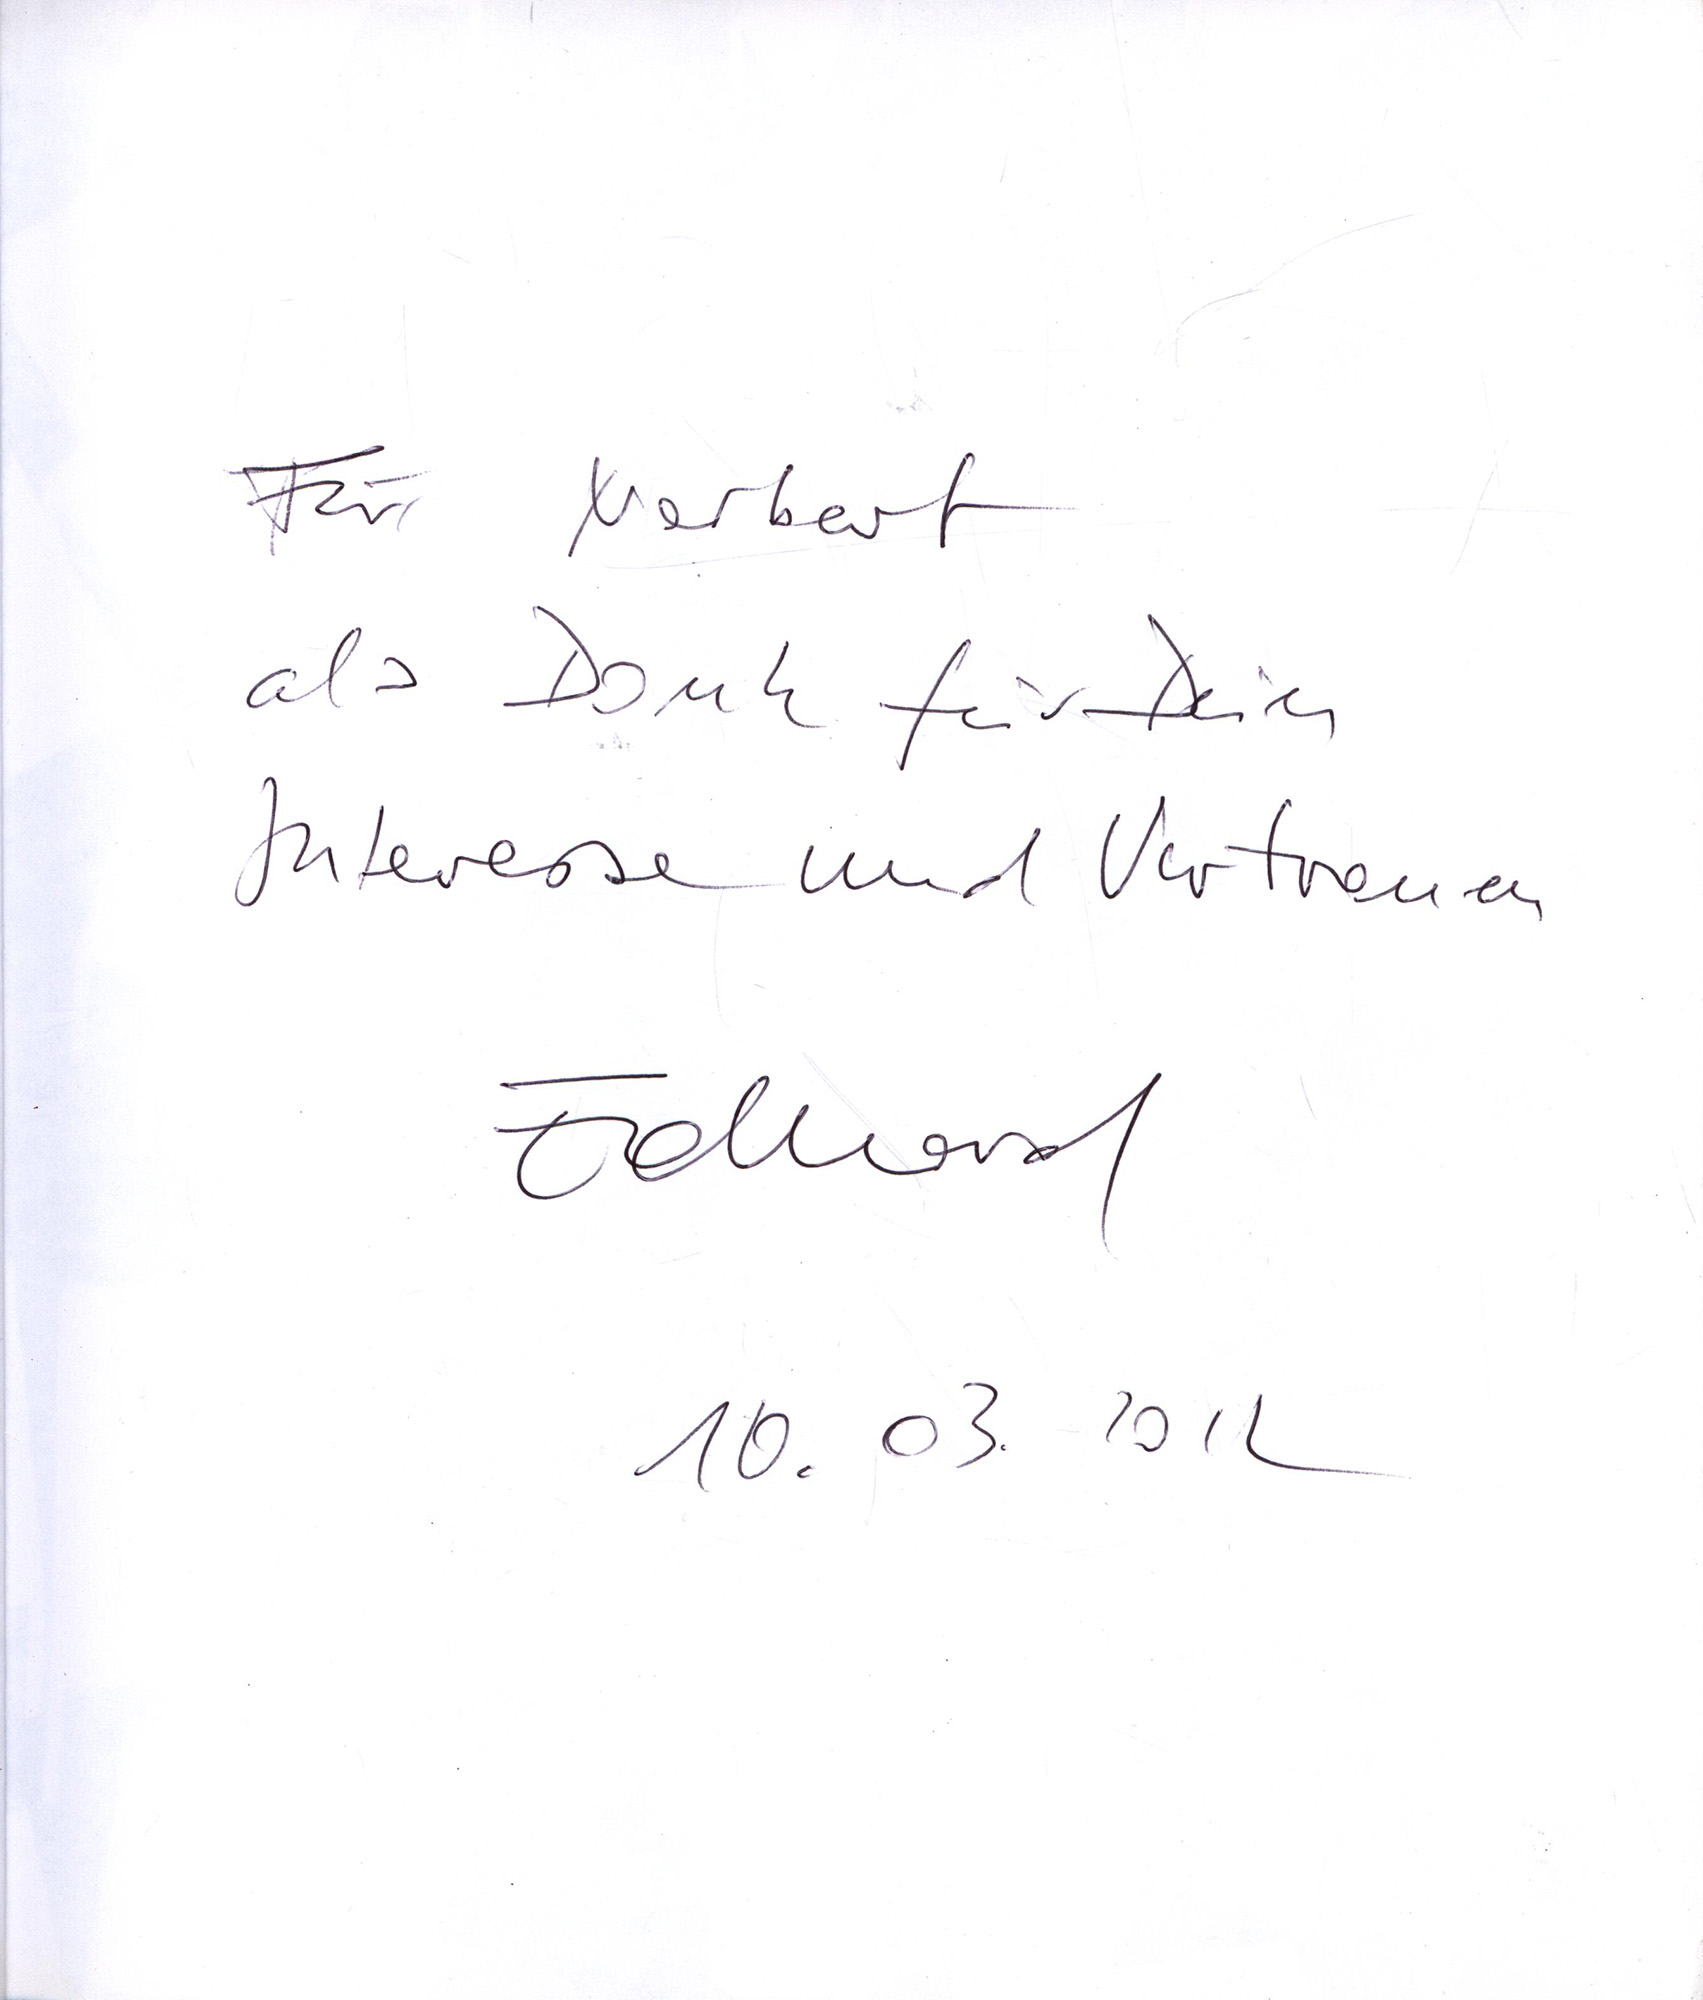 Für Norbert
als Dank für Dein
Interesse und Vertrauen
Eckhard
10. 03. 2012